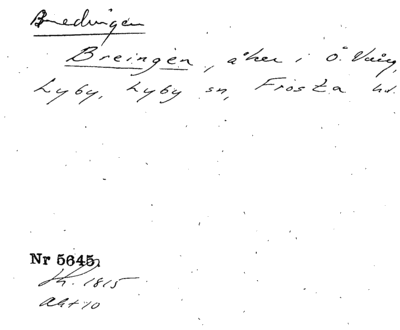 Bredingen
Breingen, åker i Ö. Vång,
Lyby, Lyby sn, Frosta hd.
Nr 5645,
Sk. 1815
Akt 10